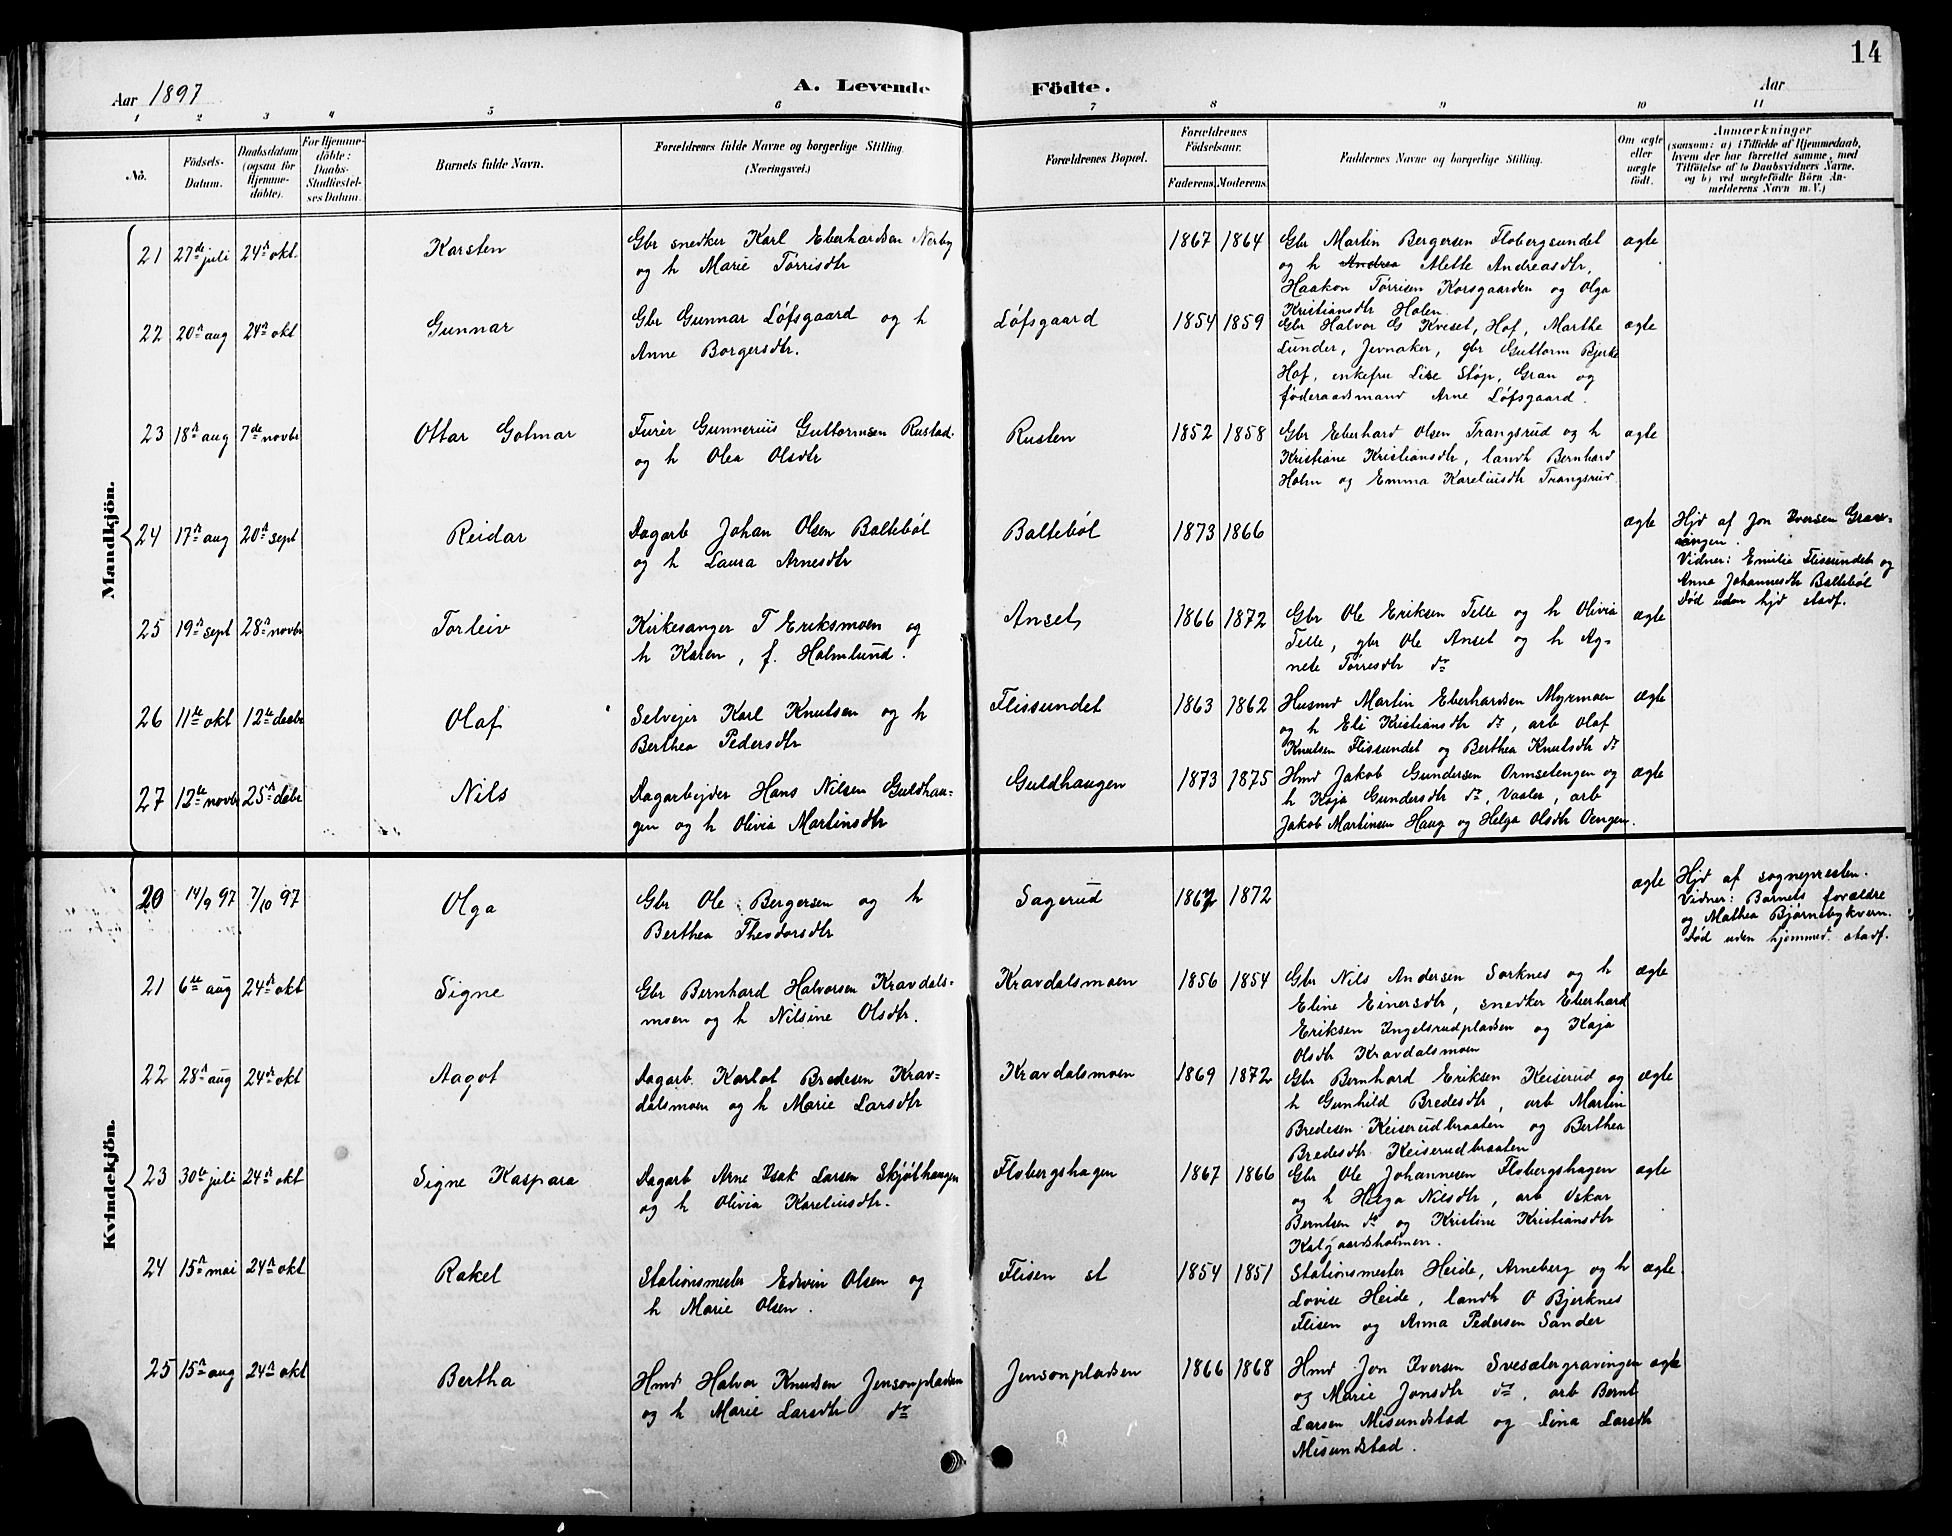 14
Aar 1897
A. Levende Födte.
Aar
1 2 3 4 5 6 7 8 9 10 11
No.
Födsels-Datum.
Daabsdatum (ogsaa for Hjemme-döbte).
For Hjemme-döbte: Daabs-Stadfæstel-ses Datum.
Barnets fulde Navn.
Forældrenes fulde Navne og borgerlige Stilling. (Næringsvei.)
Forældrenes Bopæl.
Forældrenes Födselsaar.
Faderens. Moderens.
Faddernes Navne og borgerlige Stilling.
Om ægte eller uægte födt.
Anmærkninger
(saasom: a) i Tilfælde af Hjemmedaab,
hvem der har forrettet samme, med
Tilföielse af to Daabsvidners Navne.
og b) ved uægtefödte Börn An-
melderens Navn m. V.)
Mandkjön.
21 27de juli 24n okt. Karsten
Gbr snedker Karl Eberhardsen Nerby
og h Marie Tørrisdtr
1867 1864
Gbr Martin Bergersen Flobergsundet
og h Andrea Mette Andreasdtr,
Haakon Tørrisen Korsgaarden og Olga
Kristiansdtr Holen
ægte
22 20n aug 24n okt Gunnar
Gbr Gunnar Løfsgaard og h
Anne Borgersdtr.
Løfsgaard 1854 1859
Gbr Halvor G Kveset, Hof, Marthe
Lunder, Jevnaker, gbr Guttorm Bjerke
Hof, enkefru Lise Støp, Gran og
føderaadsmand Arne Løfsgaard.
ægte
23 18n aug 7de novbr Ottar Golmar
Furér Gunnerius Guttormsen Rustad
og h Olea Olsdtr
Rusten 1852 1858
Gbr Eberhard Olsen Trangsrud og h
Kristiane Kristiansdtr, landh Bernhard
Holm og Emma Kareliusdtr Trangsrud
ægte
24 17n aug 20n sept Reidar
Dagarb Johan Olsen Baltebøl
og h Laura Arnesdtr
Baltebøl 1873 1866
ægte
Hjd af Jon Iversen Grav-
ingen.
Vidner: Emilie Flissundet og
Anna Johannesdtr Baltebøl
Død uden hjd stadf.
25 19n sept 28n novbr Torleiv
Kirkesanger T Eriksmoen og
h Karen, f. Holmlund.
Anset 1866 1872
Gbr Ole Eriksen Telle og h Olivia
Telle, gbr Ole Anset og h Ag-
nete Tørresdtr do
ægte
26 11te okt 12te decbr Olaf
Selvejer Karl Knutsen og h
Berthea Pedersdtr
Flissundet 1863 1862
Husmd Martin Eberhardsen Myrmoen
og h Eli Kristiansdtr do, arb Olaf
Knutsen Flissundet og Berthea Knutsdtr do
ægte
27 12te novbr 25n decbr Nils
Dagarbejder Hans Nilsen Guldhau-
gen og h Olivia Martinsdtr
Guldhaugen 1873 1875
Hmd Jakob Gundersen Ormsetengen og
h Kaja Gundersdtr do, Vaaler, arb
Jakob Martinsen Haug og Helga Olsdtr Oengen.
ægte
Kvindekjön.
20 14/9 97 7/10 97 Olga
Gbr Ole Bergersen og h
Berthea Theodorsdtr
Sagerud 1867 1872
ægte
Hjd af sognepresten.
Vidner: Barnets forældre
og Mathea Bjørnebykvern.
Død uden hjemmed. stadf.
21 6te aug 24n okt Signe
Gbr Bernhard Halvorsen Kravdals-
moen og h Nilsine Olsdtr.
Kravdalsmoen 1856 1854
Gbr Nils Andersen Sorknes og h
Eline Einersdtr, snedker Eberhard
Eriksen Ingelsrudpladsen og Kaja
Olsdtr Kravdalsmoen
ægte
22 28n aug 24n okt Aagot
Dagarb. Karlot Bredesen Krav-
dalsmoen og h Marie Larsdtr
Kravdalsmoen 1869 1872
Gbr Bernhard Eriksen Keiserud og
h Gunhild Bredesdtr, arb Martin
Bredesen Keiserudbraaten og Berthea
Bredesdtr Keiserudbraaten
ægte
23 30te juli 24n okt Signe Kaspara
Dagarb Arne Isak Larsen Skjølhaugen
og h Olivia Kareliusdtr.
Flobergshagen 1867 1866
Gbr Ole Johannesen Flobergshagen
og h Helga Nilsdtr, arb Oskar
Berntsen do og Kristine Kristiansdtr
Kalgaardsholmen.
ægte
24 15n mai 24n okt Rakel
Stationsmester Edwin Olsen og
h Marie Olsen.
Flisen st 1854 1851
Stationsmester Heide, Arneberg og h
Lovise Heide, landh O Bjerknes
Flisen og Anna Pedersen Sander
ægte.
25 15n aug 24n okt Bertha
Hmd Halvor Knudsen Jensonpladsen
og h Marie Larsdtr do
Jensonpladsen 1866 1868
Hmd Jon Iversen Svesætergravingen
og Marie Jonsdtr do, arb Bernt
Larsen Misundstad og Lina Larsdtr
Misundstad.
ægte